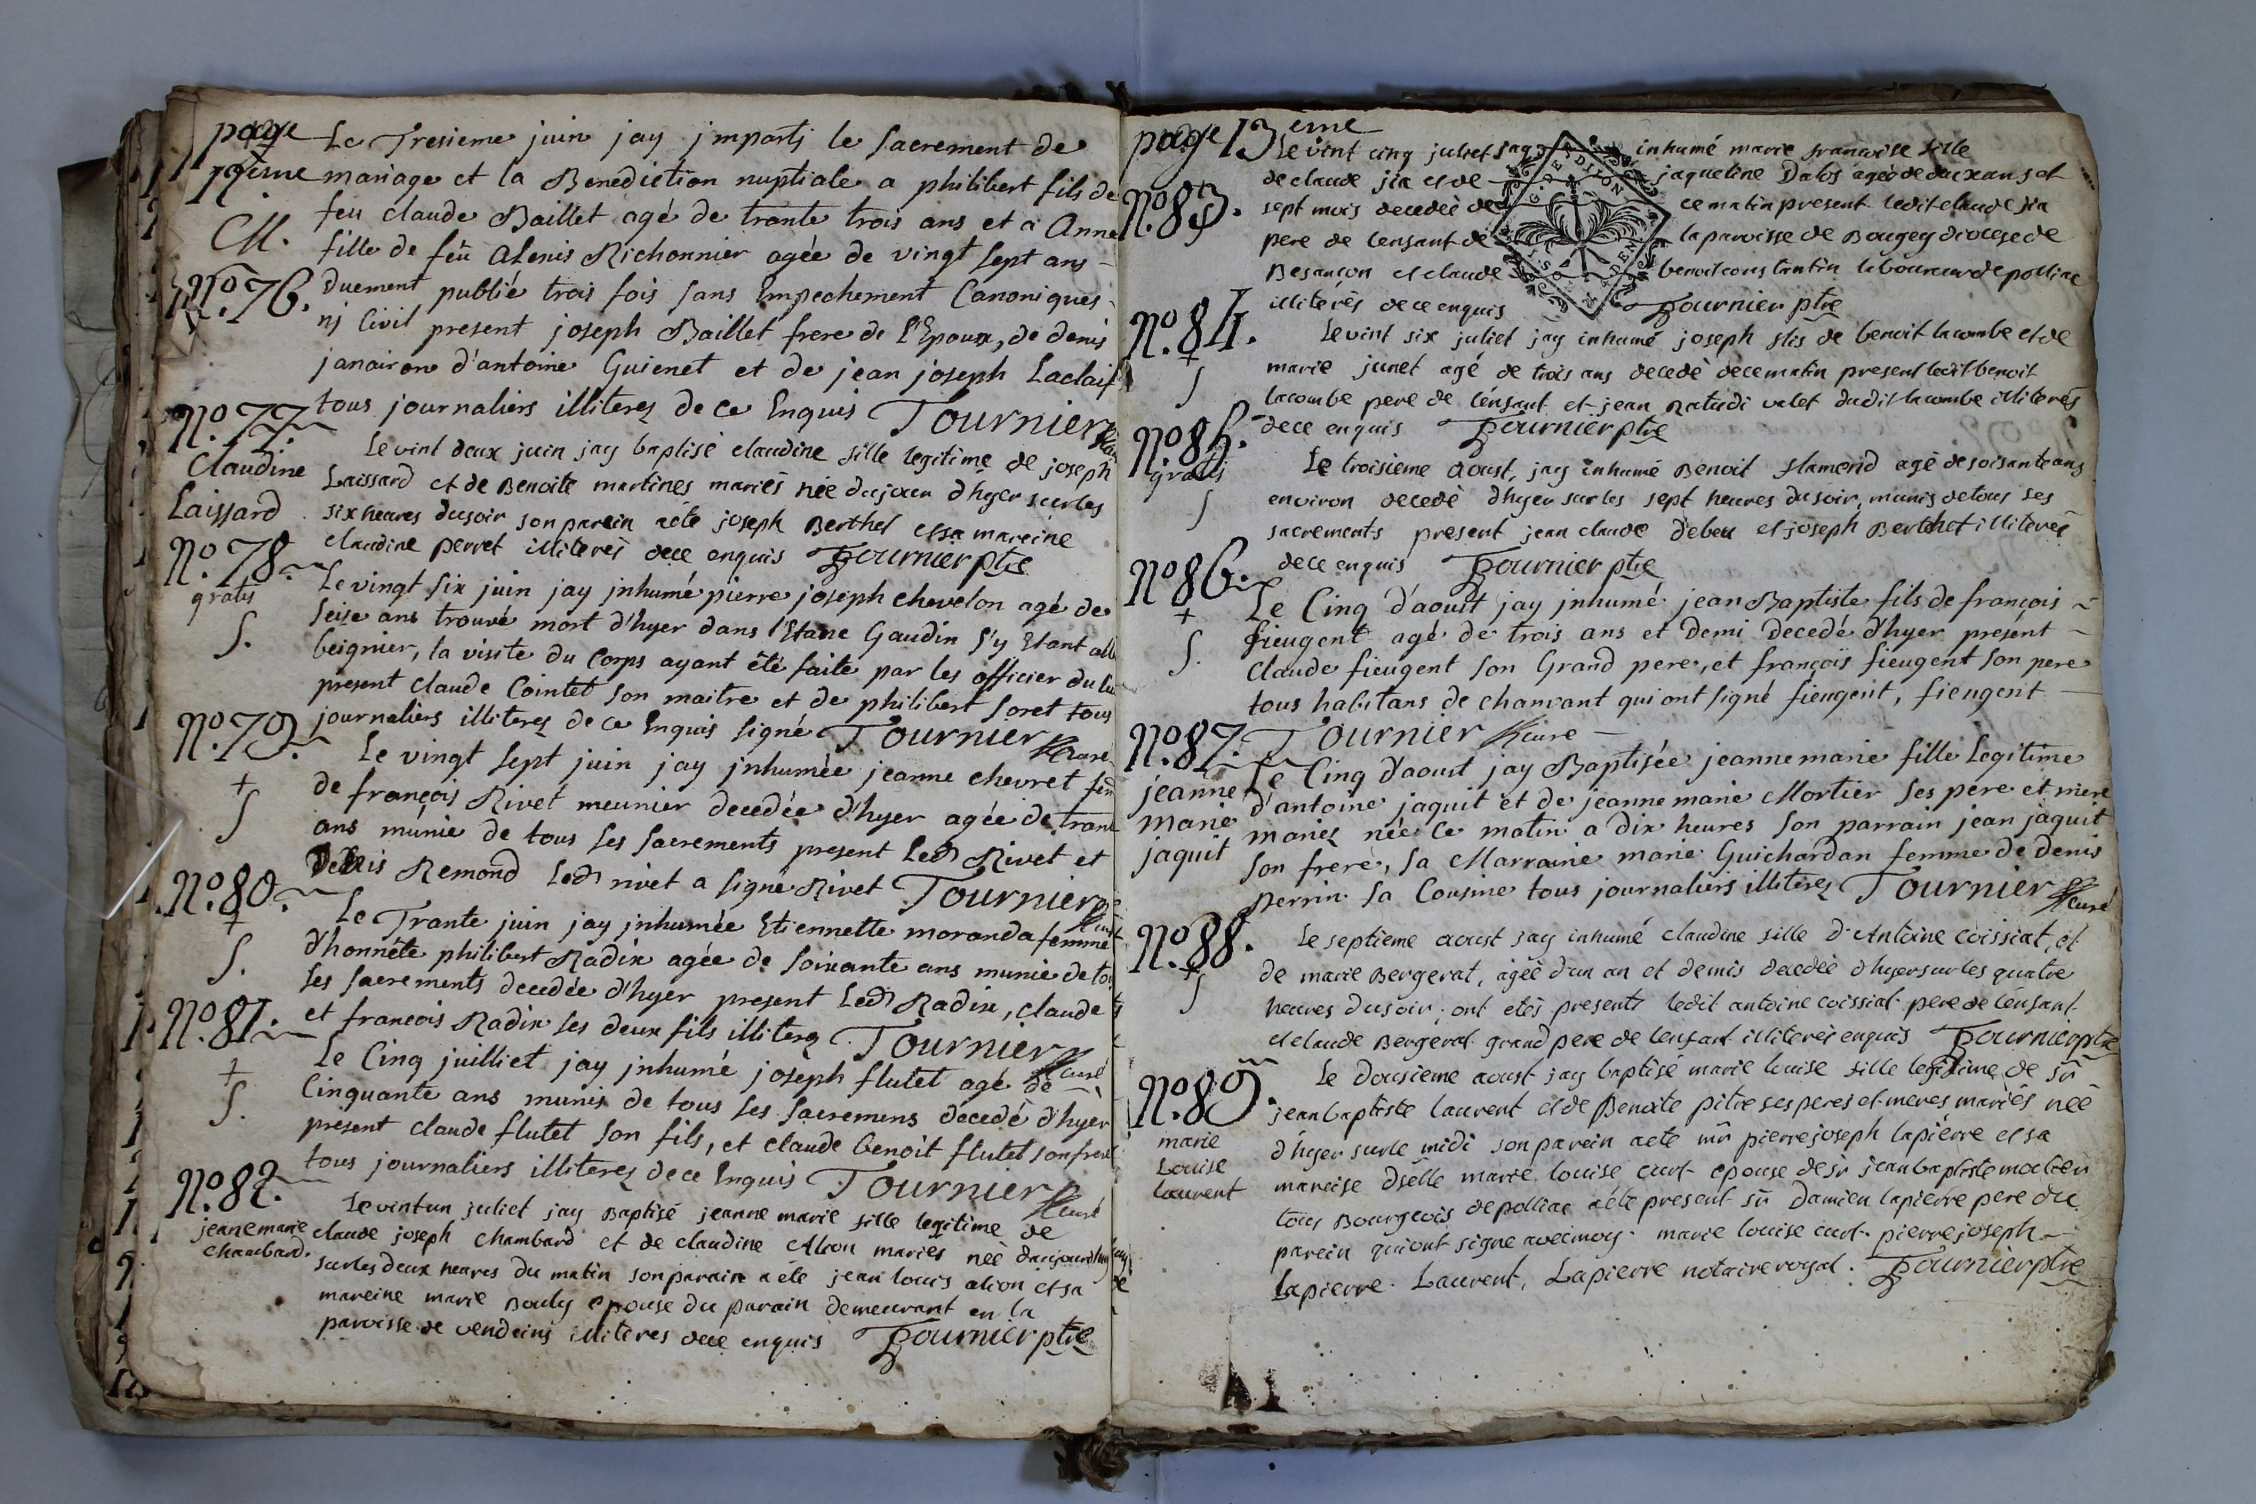 page
12eme
Le Tresieme juin jay jmparti le sacrement de
mariage et la Benediction nuptiale a philibert fils de
feu claude Baillet agé de trante trois ans et a Anne
M.
fille de feu alexis Richonnier agée de vingt sept ans
No. 76.
duement publié trois fois sans Empechement Canoniques
nj Civil present joseph Baillet frere de l'Epoux, de denis
janairon d'antoine Guienet et de jean joseph Laclaif
tous journaliers illiterez de ce Enquis Tournier
No. 77.
Claudine
Laissard
Le vint deux juin jay baptisé claudine fille legitime de joseph
Laissard et de Benoite martines mariés née du jour d'hyer sur les
six heures du soir son parein a été joseph Berthet et sa mareine
claudine perret illiterés de ce enquis Tournier ptre
No. 78.
gratis
S.
Le vingt six juin jay jnhumé pierre joseph chevelon agé de
seise ans trouvé mort d'hyer dans l'Etanc Gaudin s'y Etant allé
beignier, la visite du Corps ayant été faite par les officier du
present claude Cointet son maitre et de philibert Soret tous
journaliers illiterez de ce Enquis signé Tournier Curé
No. 79.
+
S
Le vingt sept juin jay jnhumée jeanne chevret fem
de françois Rivet meunier decedée d'hyer agée de trante
ans munie de tous ses sacrements present Led Rivet et
Denis Remond Led rivet a signé Rivet Tournier
No. 80.
+
S.
Le Trante juin jay jnhumée Etiennette moranda femme
d'honnête philibert Radix agée de soixante ans munie de to
ses sacrements decedée d'hyer present Led Radix, claude
et francois Radix ses deux fils illiterez Tournier Curé
No. 81.
+
S.
Le Cinq juilliet jay jnhumé joseph flutet agé de
Cinquante ans munis de tous ses sacremens decedé d'hyer
présent claude flutet son fils, et claude benoit flutet son frere
tous journaliers illiterez de ce Enquis Tournier Curé
No. 82.
jeane marie
chambard.
Le vint un juliet jay Baptisé jeanne marie fille legitime de
claude joseph chambard et de claudine Alion mariés née daujourdhuy
sur les deux heures du matin son parain a été jean louis alion et sa
mareine marie Bouly epouse du parain demeurant en la
paroisse de vendeins illiteres de ce enquis Tournier ptre
page 13eme
No. 83.
Le vint cinq juliet jay inhumé marie francoise fille
de claude jia et de jaqueline Dalos agée de deux ans et
sept mois decedée de ce matin present ledit claude jia
pere de lenfant de la paroisse de Bougey diocese de
Besancon et claude benoit constantin laboureur de polliac
illiterés de ce enquis Tournier ptre
No. 84.
+
S
Le vint six juliet jay inhumé joseph fils de benoit lacombe et de
marie junet agé de trois ans decedé de ce matin present ledit benoit
lacombe pere de lénfant et jean Ratudi valet dudit lacombe illiterés
de ce enquis Tournier ptre
No. 85.
gratis
S
Le troisieme aoust, jay inhumé Benoit flamend agé de soisante ans
environ decedé d'hyer sur les sept heures du soir, munis de tous ses
sacrements present jean claude debeu et joseph Berthet illiterés
de ce enquis Tournier ptre
No 86.
+
S.
Le Cinq d'aoust jay jnhumé jean Baptiste fils de françois
fieugent agé de trois ans et demi decedé d'hyer présent
Claude fieugent son Grand pere, et françois fieugent son pere
tous habitans de chanvant qui ont signé fieugent, fieugent
Tournier Curé
No. 87.
jeanne
marie
jaquit
Le Cinq d'aoust jay Baptisée jeanne marie fille Legitime
d'antoine jaquit et de jeanne marie Mortier ses pere et mere
mariez née ce matin a dix heures son parrain jean jaquit
son frere, sa Marraine marie Guichardan femme de denis
perrin sa Cousine tous journaliers illiterez Tournier Curé
No 88.
+
S
Le septieme aoust jay inhumé claudine fille d'Antoine coissiat, et
de marie Bergerat, agée d'un an et demis decedée d'hyer sur les quatre
heures du soir, ont etés presents ledit antoine coissiat pere de lénfant
et claude Bergerat grand pere de lenfant illiterés enquis Tournier ptre
No. 89.
marie
Louise
Laurent
Le dousieme aoust jay baptisé marie louise fille legitime de sr
jean baptiste laurent et de Benoite pitre ses peres et meres mariés née
d'hyer sur le midi son parein a eté mr pierre joseph lapierre et sa
mareise dselle marie louise curt epouse de sr jean baptiste molier
tous Bourgeois de polliac a été present sr Damien lapierre pere du
parein qui ont signe avec moy. marie louise curt. pierre joseph
Lapierre. Laurent, Lapierre notaire royal. Tournier ptre